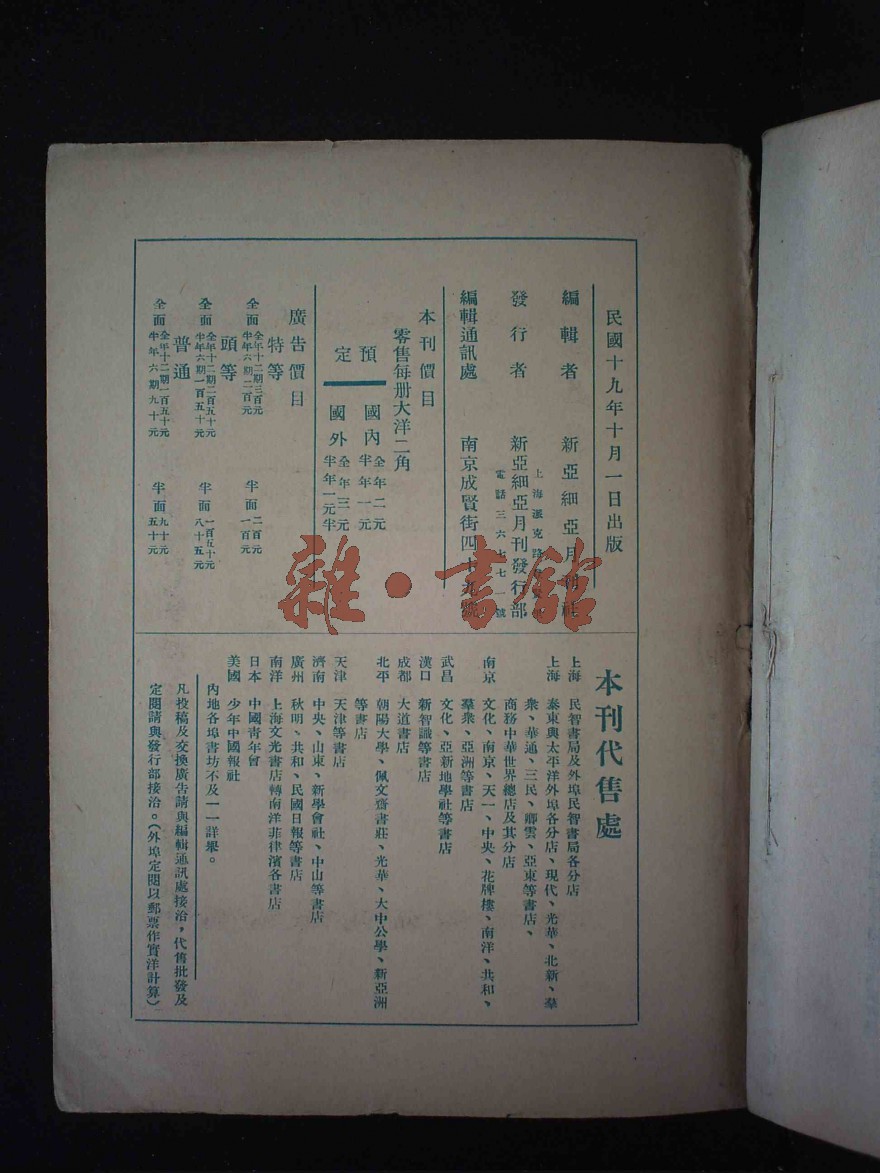 民國十九年十月一日出版
編輯者 新亞細亞月刊社
發行者 新亞細亞月刊發行部
上海派克路
電話三六七七一號
編輯通訊處 南京成賢街四十九號
本刊價目
零售每册大洋二角
預定
國內 全年二元 半年一元
國外 全年三元 半年一元半
廣告價目
特等
全面 全年十二期三百元 半年六期二百元
半面 二百元 一百元
頭等
全面 全年十二期二百五十元 半年六期一百五十元
半面 一百五十元 八十五元
普通
全面 全年十二期一百五十元 半年六期九十元
半面 九十元 五十元
本刊代售處
上海 民智書局及外埠民智書局各分店
上海 泰東興太平洋外埠各分店、現代、光華、北新、羣
衆、華通、三民、卿雲、亞東等書店、
商務中華世界總店及其分店
南京 文化、南京、天一、中央、花牌樓、南洋、共和、
羣衆、亞洲等書店
武昌 文化、亞新地學社等書店
漢口 新智識等書店
成都 大道書店
北平 朝陽大學、佩文齋書莊、光華、大中公學、新亞洲
等書店
天津 天津等書店
濟南 中央、山東、新學會社、中山等書店
廣州 秋明、共和、民國日報等書店
南洋 上海文光書店轉南洋菲律濱各書店
日本 中國青年會
美國 少年中國報社
內地各埠書坊不及一一詳舉。
凡投稿及交換廣告請與編輯通訊處接洽，代售批發及
定閱請與發行部接洽。（外埠定閱以郵票作實洋計算）
雜·書館